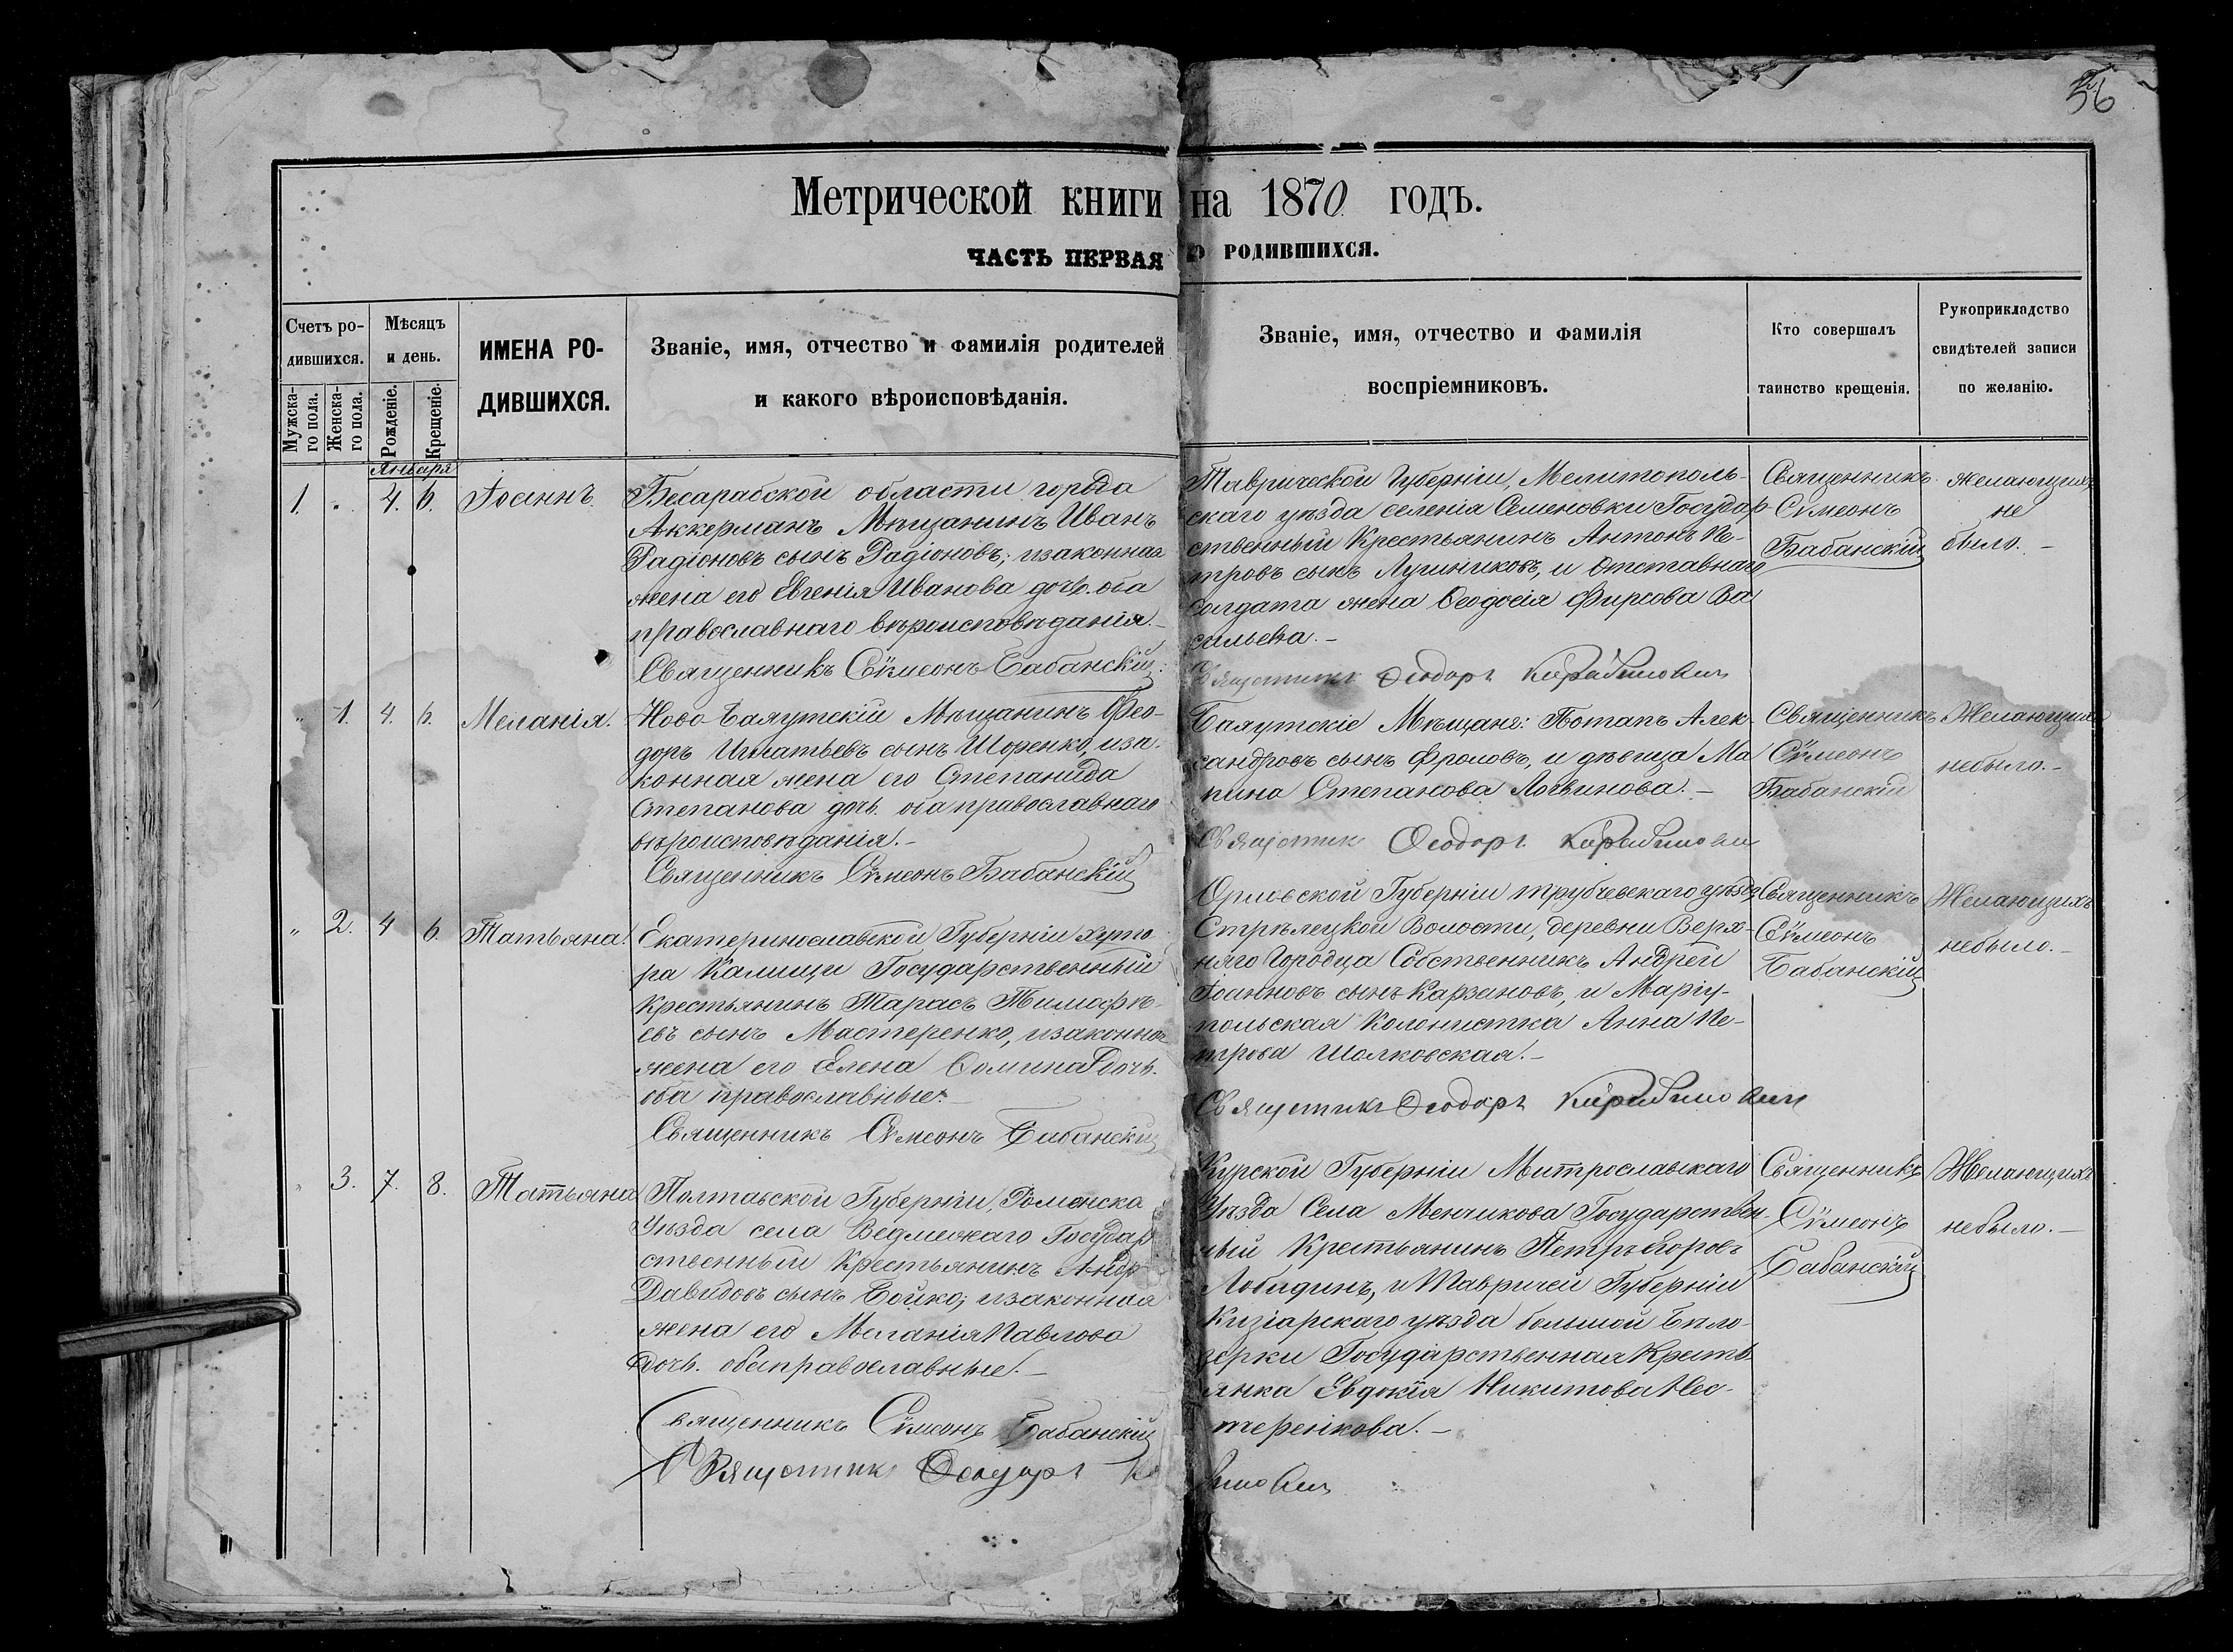 56
Метрической книги на 1870 годъ.
ЧАСТЬ ПЕРВАЯ О РОДИВШИХСЯ.
Счетъ ро-
дившихся.
Мужска-
го пола.
Женска-
го пола.
Мѣсяцъ
и день.
Рожденіе.
Крещеніе.
ИМЕНА РО-
ДИВШИХСЯ.
Званіе, имя, отчество и фамилія родителей
и какого вѣроисповѣданія.
Званіе, имя, отчество и фамилія
воспріемниковъ.
Кто совершалъ
таинство крещенія.
Рукоприкладство
свидѣтелей записи
по желанію.
Января
1. " 4. 6. Іоаннъ.
Бесарабской области города
Аккерманъ Мѣщанинъ Иванъ
Радіоновъ сынъ Радіоновъ; изаконная
жена его Евгенія Иванова дочь. оба
православнаго вѣроисповѣданія.-
Священникъ Сѵмеонъ Бабанскій
Таврической Губерніи, Мелитополь-
скаго уѣзда селенія Семеновки Государ-
ственный Крестьянинъ Антонъ Пе-
тровъ сынъ Лучниковъ, и Отставнаго
Солдата жена Ѳеодосія Фирсова Ва
сильева.-
Священникъ Ѳеодоръ
Священникъ
Сѵмеонъ
Бабанскій
желающихъ
не
было.-
" 1. 4. 6. Меланія.
Ново-Баяутскій Мѣщанинъ Фео-
доръ Игнатьевъ сынъ Шоренко, иза-
конная жена его Степанида
Степанова дочь. оба православнаго
вѣроисповѣданія.-
Священникъ Сѵмеонъ Бабанскій
Баяутскіе Мѣщане: Потапъ Алек-
сандровъ сынъ Фроловъ, и дѣвица Ма
Степанова Логвинова.-
Ѳеодоръ
Священникъ
Сѵмеонъ
Бабанскій
Желающихъ
небыло.-
" 2. 4 6. Татьяна.
Екатеринославской Губерніи хуто-
ра Камищи Государственный
Крестьянинъ Тарасъ Тимофѣ-
евъ сынъ Мастеренко, изаконная
жена его Елена Ѳомина дочь.
оба православные.-
Священникъ Сѵмеонъ Бабанскій
Орловской Губерніи трубчевскаго уѣзда
Стрѣлецкой Волости, деревни Верх-
няго Городца Собственникъ Андрей
Іоанновъ сынъ Карзановъ, и Маріу-
польская Колонистка Анна Пе-
трова Шолковская.-
Ѳеодоръ
Священникъ
Сѵмеонъ
Бабанскій
Желающихъ
небыло.-
" 3. 7. 8. Татьяна
Полтавской Губерніи, Роменска
Уѣзда села Ведмежаго Государ
ственный Крестьянинъ Андр
Давидовъ сынъ Бойко; изаконная
жена его Меланія Павлова
дочь. оба православные.-
Священникъ Сѵмеонъ Бабанскій
Ѳеодоръ
Курской Губерніи Митрославскаго
Уѣзда Села Менчикова Государствен-
ный Крестьянинъ Петръ Егоровъ
Лобидинъ, и Тавричей Губерніи
Кизіарскаго уѣзда большой Бѣло-
зерки Государственная Кресть-
янка Евдокія Никитова Нес-
теренкова.-
Священникъ
Сѵмеонъ
Бабанскій
Желающихъ
небыло.-